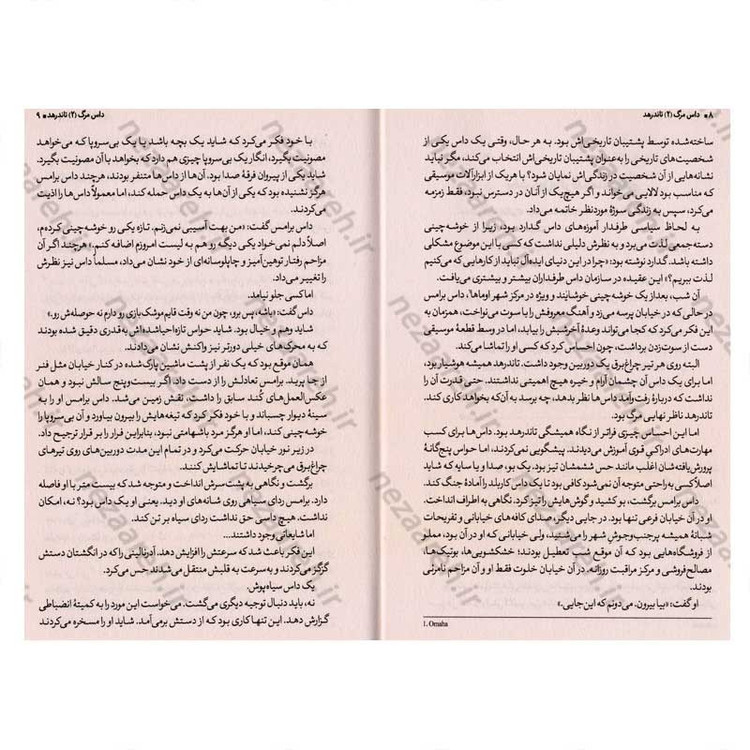 ۸ ■ داس مرگ (۲) تاندرهد
ساخته‌شده توسط پشتیبان تاریخی‌اش بود. به هر حال، وقتی یک داس یکی از
شخصیت‌های تاریخی را به‌عنوان پشتیبان تاریخی‌اش انتخاب می‌کند، مگر نباید
نشانه‌هایی از آن شخصیت در زندگی‌اش نمایان شود؟ با هر یک از ابزارآلات موسیقی
که مناسب بود لالایی می‌خواند و اگر هیچ‌یک از آنان در دسترس نبود، فقط زمزمه
می‌کرد، سپس به زندگی سوژهٔ موردنظر خاتمه می‌داد.
به لحاظ سیاسی طرفدار آموزه‌های داس گدارد بود، زیرا از خوشه‌چینی
دسته‌جمعی لذت می‌برد و به نظرش دلیلی نداشت که کسی با این موضوع مشکلی
داشته باشد. گدارد نوشته بود: «چرا در این دنیای ایده‌آل نباید از کارهایی که می‌کنیم
لذت ببریم؟» این عقیده در سازمان داس طرفداران بیشتر و بیشتری می‌یافت.
آن شب، بعد از یک خوشه‌چینی خوشایند و ویژه در مرکز شهر اوماها، داس برامس
در حالی که در خیابان پرسه می‌زد و آهنگ معروفش را با سوت می‌نواخت، همزمان به
این فکر می‌کرد که کجا می‌تواند وعدهٔ آخرشبش را بیابد، اما در وسط قطعهٔ موسیقی
دست از سوت‌زدن برداشت، چون احساس کرد که کسی او را تماشا می‌کند.
البته روی هر تیر چراغ‌برق یک دوربین وجود داشت. تاندرهد همیشه هوشیار بود،
اما برای یک داس آن چشمان آرام و خیره هیچ اهمیتی نداشتند. حتی قدرت آن را
نداشت که دربارهٔ رفت‌وآمد داس‌ها نظر بدهد، چه برسد به آن‌که بخواهد کاری کند.
تاندرهد ناظر نهایی مرگ بود.
اما این احساس چیزی فراتر از نگاه همیشگی تاندرهد بود. داس‌ها برای کسب
مهارت‌های ادراکی قوی آموزش می‌دیدند. پیشگویی نمی‌کردند، اما حواس پنج‌گانهٔ
پرورش‌یافته‌شان اغلب مانند حس ششمشان تیز بود. یک بو، صدا و یا سایه که شاید
اصلاً کسی به راحتی متوجه آن نمی‌شود کافی بود تا یک داس کاربلد را آمادهٔ جنگ کند.
داس برامس برگشت، بو کشید و گوش‌هایش را تیز کرد. نگاهی به اطراف انداخت.
او در آن خیابان فرعی تنها بود. در جایی دیگر، صدای کافه‌های خیابانی و تفریحات
شبانهٔ همیشه پرجنب‌وجوش شهر را می‌شنید، ولی خیابانی که او در آن بود، مملو
از فروشگاه‌هایی بود که آن موقع شب تعطیل بودند؛ خشکشویی‌ها، بوتیک‌ها،
مصالح‌فروشی و مرکز مراقبت روزانه. در آن خیابان خلوت فقط او و آن مزاحم نامرئی
بودند.
او گفت: «بیا بیرون. می‌دونم که این‌جایی.»
1. Omaha
داس مرگ (۲) تاندرهد ■ ۹
با خود فکر می‌کرد که شاید یک بچه باشد یا یک بی‌سروپا که می‌خواهد
مصونیت بگیرد، انگار یک بی‌سروپا چیزی هم دارد که بخواهد با آن مصونیت بگیرد.
شاید یکی از پیروان فرقهٔ صدا بود. آن‌ها از داس‌ها متنفر بودند، هرچند برامس
هرگز نشنیده بود که یکی از آن‌ها به یک داس حمله کند، اما معمولاً داس‌ها را اذیت
می‌کردند.
داس برامس گفت: «من بهت آسیبی نمی‌زنم. تازه یکی رو خوشه‌چینی کرده‌م،
اصلاً دلم نمی‌خواد یکی دیگه رو هم به لیست امروزم اضافه کنم.» هرچند اگر آن
مزاحم رفتار توهین‌آمیز و چاپلوسانه‌ای از خود نشان می‌داد، مسلماً داس نیز نظرش
را تغییر می‌داد.
اما کسی جلو نیامد.
داس گفت: «باشه، پس برو، چون من نه وقت قایم‌موشک‌بازی رو دارم نه حوصله‌ش رو.»
شاید وهم و خیال بود. شاید حواس تازه احیاشده‌اش به‌قدری دقیق شده بودند
که به محرک‌های خیلی دورتر نیز واکنش نشان می‌دادند.
همان موقع بود که یک نفر از پشت ماشین پارک‌شده در کنار خیابان مثل فنر
از جا پرید. برامس تعادلش را از دست داد. اگر بیست‌وپنج سالش نبود و همان
عکس‌العمل‌های کُند سابق را داشت، نقش زمین می‌شد. داس برامس او را به
سینهٔ دیوار چسباند و با خود فکر کرد که تیغه‌هایش را بیرون بیاورد و آن بی‌سروپا را
خوشه‌چینی کند، اما او هرگز مرد باشهامتی نبود، بنابراین فرار را بر قرار ترجیح داد.
در زیر نور خیابان حرکت می‌کرد و در تمام این مدت دوربین‌های روی تیرهای
چراغ‌برق می‌چرخیدند تا تماشایش کنند.
برگشت و نگاهی به پشت‌سرش انداخت و متوجه شد که بیست متر با او فاصله
دارد. برامس ردای سیاهی روی شانه‌های او دید. یعنی او یک داس بود؟ نه، امکان
نداشت. هیچ داسی حق نداشت ردای سیاه بر تن کند.
اما شایعاتی وجود داشتند...
این فکر باعث شد که سرعتش را افزایش دهد. آدرنالینی را که در انگشتان دستش
گزگز می‌کردند و به‌سرعت به قلبش منتقل می‌شدند حس می‌کرد.
یک داس سیاه‌پوش.
نه، باید دنبال توجیه دیگری می‌گشت. می‌خواست این مورد را به کمیتهٔ انضباطی
گزارش دهد. این تنها کاری بود که از دستش برمی‌آمد. شاید او را مسخره می‌کردند
nezaamh.ir